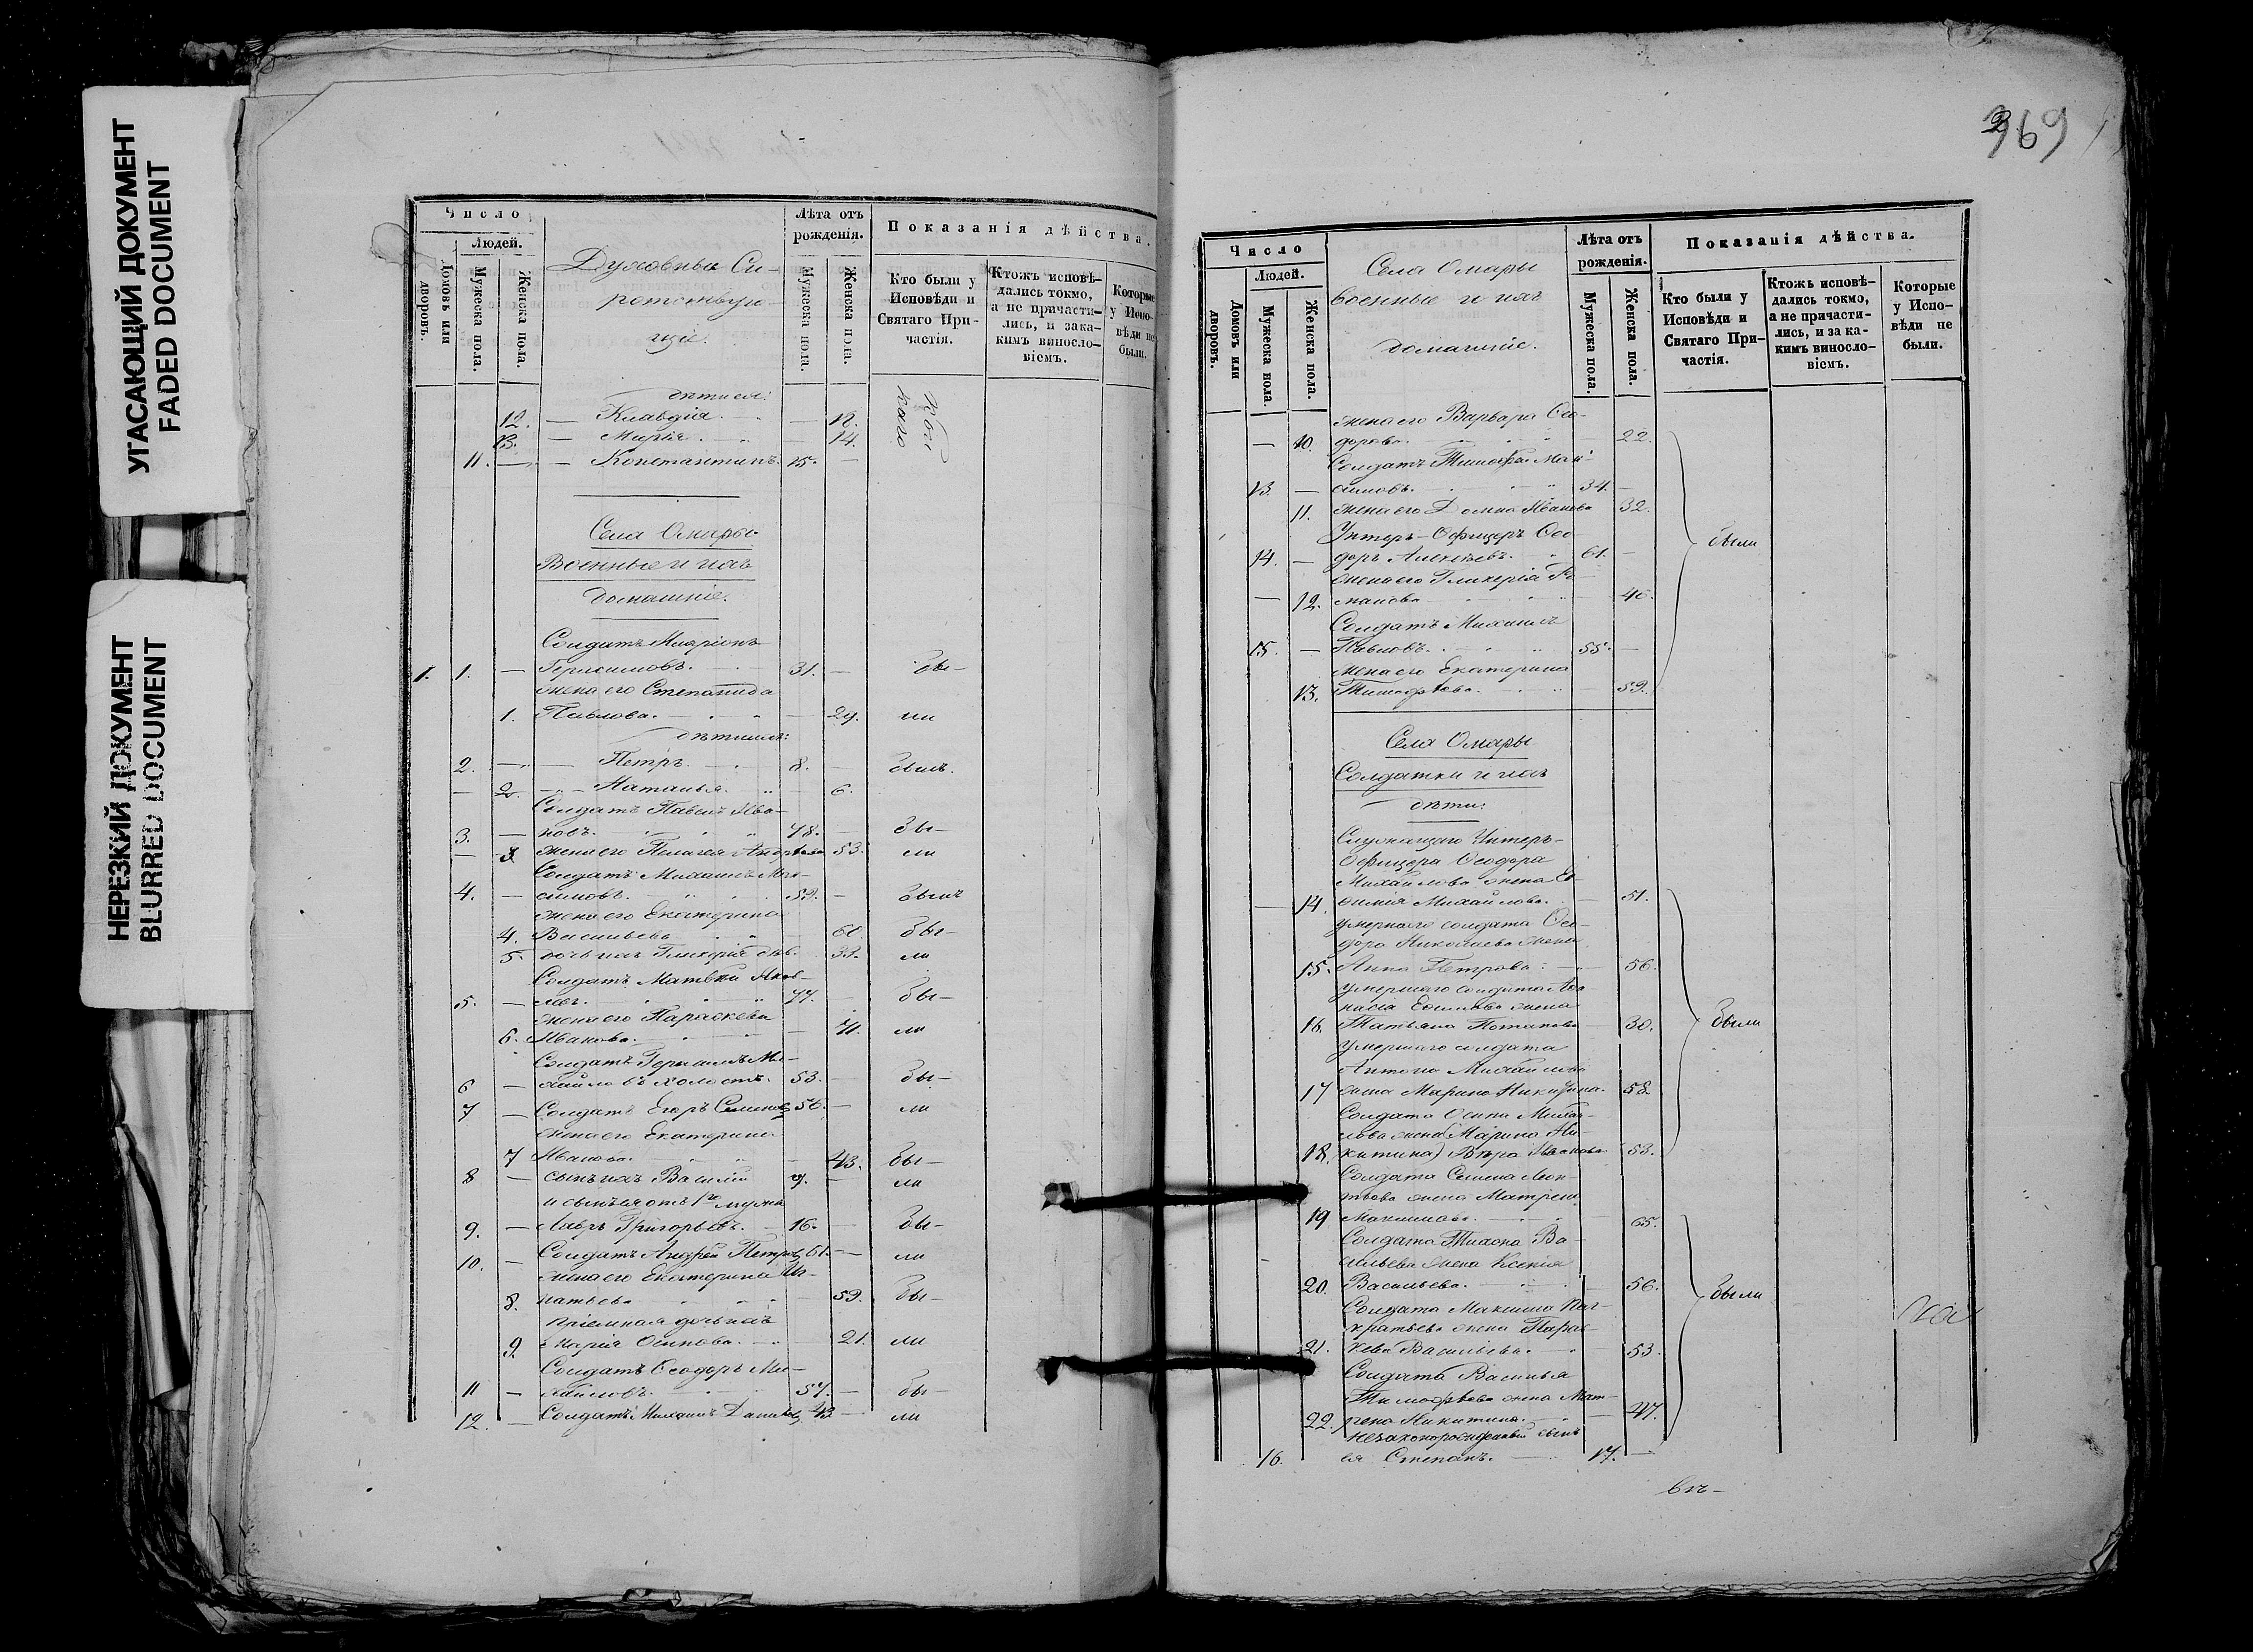 УГАСАЮЩИЙ ДОКУМЕНТ
FADED DOCUMENT
НЕРЕЗКИЙ ДОКУМЕНТ
BLURRED DOCUMENT
Число
Людей.
Домовъ или дворовъ.
Мужеска пола.
Женска пола.
Духовные Си-
ротствую-
щіе.
Лѣта отъ рожденія.
Мужеска пола.
Женска пола.
Показанія дѣйства.
Кто были у Исповѣди и Святаго При-частія.
Ктожъ исповѣ-дались токмо, а не причасти-лись, и зака-кимъ виносло-віемъ.
Которые у Испо-вѣди не были.
12. — Клавдія — 18.
13. — Марія — 14.
11. — — Константинъ. 15. —
Села Омары
Военные и ихъ
домашніе.
Солдатъ Иларіонъ
1. 1. — Герасимовъ. 31. — бы-
жена его Степанида
1. Павлова. — 29. ли
дѣти ихъ:
2. — — Петръ. 8. — былъ.
— 2. — Наталья — 6.
Солдатъ Павелъ Ива-
3. — новъ. 78. — бы-
— 3. жена его Пелагея Андреева 53. ли
Солдатъ Михаилъ Мак-
4. — симовъ. 59. — былъ
жена его Екатерина
4. Васильева — 60 бы-
5. дочь ихъ Гликерія дѣв. 33. ли
Солдатъ Матвѣй Яков-
5. — левъ. 77. — бы-
жена его Параскева
6. Иванова. — 71. ли
Солдатъ Герасимъ Ми-
6 — хайловъ холостъ. 53. — бы-
7 — Солдатъ Егоръ Семеновъ 56. — ли
жена его Екатерина
7 Иванова. — 43. бы-
8 — сынъ ихъ Василій 9. — ли
и сынъ ея отъ 1го мужа
9. — Лавръ Григорьевъ. 16. — бы-
10. — Солдатъ Андрей Петровъ 61. — ли
жена его Екатерина Иг-
8. натьева — 59. бы-
пріемная дочь ихъ
9. Марія Осипова. — 21. ли
Солдатъ Ѳеодоръ Ми-
11 — хайловъ. 57. — бы-
12. — Солдатъ Михаилъ Даниловъ 43 — ли
369
Число
Людей.
Домовъ или дворовъ.
Мужеска пола.
Женска пола.
Села Омары
военные и ихъ
домашніе.
Лѣта отъ рожденія.
Мужеска пола.
Женска пола.
Показанія дѣйства.
Кто были у Исповѣди и Святаго При-частія.
Ктожъ исповѣ-дались токмо, а не причасти-лись, и за ка-кимъ виносло-віемъ.
Которые у Испо-вѣди не были.
жена его Варвара Ѳео-
— 10. дорова. — 22.
Солдатъ Тимофей Мак-
13. — симовъ. 34. —
11. жена его Домна Иванова 32.
Унтеръ-Офицеръ Ѳео-
14. — доръ Алексѣевъ. 61. —
жена его Гликерія Ро-
— 12. манова — 40.
Солдатъ Михаилъ
15. — Павловъ. 55. —
жена его Екатерина
13. Тимофѣева. — 59.
были
Села Омары
Солдатки и ихъ
дѣти:
Служащаго Унтеръ-
Офицера Ѳеодора
Михайлова жена Ев-
— 14. фимія Михайлова. — 51.
умершаго солдата Ѳео-
дора Николаева жена
15. Анна Петрова: — 56.
умершаго солдата Афа
насія Ефимова жена
16. Татьяна Потапова — 30.
были
умершаго солдата
Антона Михайлова
17 жена Марина Никитина. 58.
Солдата Осипа Михай-
лова жена (Марина Ни-
18. китина) Вѣра Иванова 53.
Солдата Семена Леон-
тьева жена Матрена
19 Максимова. — 65.
Солдата Тихона Ва-
сильева жена Ксенія
20. Васильева. — 56.
были
Солдата Максима Пан-
кратьева жена Парас-
21. кева Васильева. — 53.
Солдата Василья
Тимофѣева жена Мат-
22. рена Никитина. — 47.
незаконорожденный сынъ
16. ея Степанъ. — 17. —